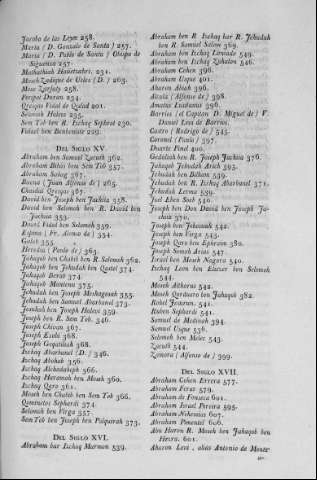 Jacobo de las Leyes 258.
Maria (D. Gonzalo de Santa) 257.
Maria (D. Pablo de Santa) Obispo de
Siguenza 257.
Mathathiah Haiietzahri. 231.
Moseh Zadique de Ucles (D.) 263.
Mose Zarfati 258.
Peripot Duran 234.
Qresqas Vidal de Quislad 201.
Selomoh Halevi 235.
Sem Tob ben R. Ischaq Sephrot 230.
Vidael ben Benbenaste 229.
DEL SIGLO XV.
Abraham ben Samuel Zacuth 362.
Abraham Bibas ben Sem Tob 357.
Abraham Salog 367.
Baena (Juan Alfonso de) 265.
Chasdai Qresqas 367.
David ben Joseph ben Jachia 358.
David ben Selomoh ben R. David ben
Jachia 353.
David Vidal ben Selomoh 359.
Espina (Fr. Alonso de) 354.
Galab 355.
Heredia (Paulo de) 363.
Jahaqob ben Chabib ben R. Selomoh 362.
Jahaqob ben Jehudah ben Qattel 374.
Jahaqob Berat 374.
Jahaqob Mantenu 375.
Jehudah ben Joseph Moskagnah 355.
Jehudah ben Samuel Abarbanel 373.
Jomtob ben Joseph Halevi 359.
Jahaqob ben R. Sem Tob. 346.
Joseph Chivan 367.
Joseph Ezobi 368.
Joseph Gigatilah 368.
Ischaq Abarbanel (D.) 346.
Ischaq Abohab 356.
Ischaq Alchadahigh 366.
Ischaq Haramah ben Moseh 360.
Ischaq Qaro 361.
Moseh ben Chabib ben Sem Tob 366.
Qominetus Sephardi 374.
Selomoh ben Virga 357
Sem Tob ben Joseph ben Palquirah 373.
DEL SIGLO XVI.
Abraham bar Ischaq Marmon 539.
Abraham ben R. Ischaq bar R. Jehudah
ben R. Samuel Salom 369.
Abraham ben Ischaq Laniado 549.
Abraham ben Ischaq Zahalon 546.
Abraham Cohen 396.
Abraham Usque 401.
Aharon Abiah 396.
Alcala (Alfonso de) 398.
Amatus Lusitanus 396.
Barrios (el Capitan D. Miguel de) V.
Daniel Levi de Barrios.
Castro (Rodrigo de) 545.
Coronel (Paulo) 397.
Duarte Pinel 400.
Gedaliah ben R. Joseph Jachia 376.
Jahaqob Jehudah Arieh 395.
Jehudah ben Bilham 539.
Jehudah ben R. Ischaq Abarbanel 371.
Jehudah Lerma 539.
Joel Aben Soeb 540.
Joseph ben Don David ben Joseph Jachia
370.
Joseph ben Jehosuah 542.
Joseph ben Virga 543.
Joseph Qaro ben Ephraim 380.
Joseph Semah Arias 547.
Israel ben Moseh Nagara 540.
Ischaq Leon ben Eliezer ben Selomoh
544.
Moseh Aitharus 541.
Moseh Qorduero ben Jahaqob 382.
Rohel Jesurun. 541.
Ruben Sephardi 541.
Samuel de Medinah 394.
Samuel Usque 536.
Selomoh ben Melec 543.
Zacuth 544.
Zamora (Alfonso de) 399.
DEL SIGLO XVII.
Abraham Cohen Errera 577.
Abraham Feraz 579.
Abraham de Fonseca 601.
Abraham Israel Pereira 595.
Abraham Nehemias 607.
Abraham Pimentel 606.
Abu Haron R. Moseh ben Jahaqob ben
Hezra. 601.
Aharon Levi, alias Antonio de Monte-